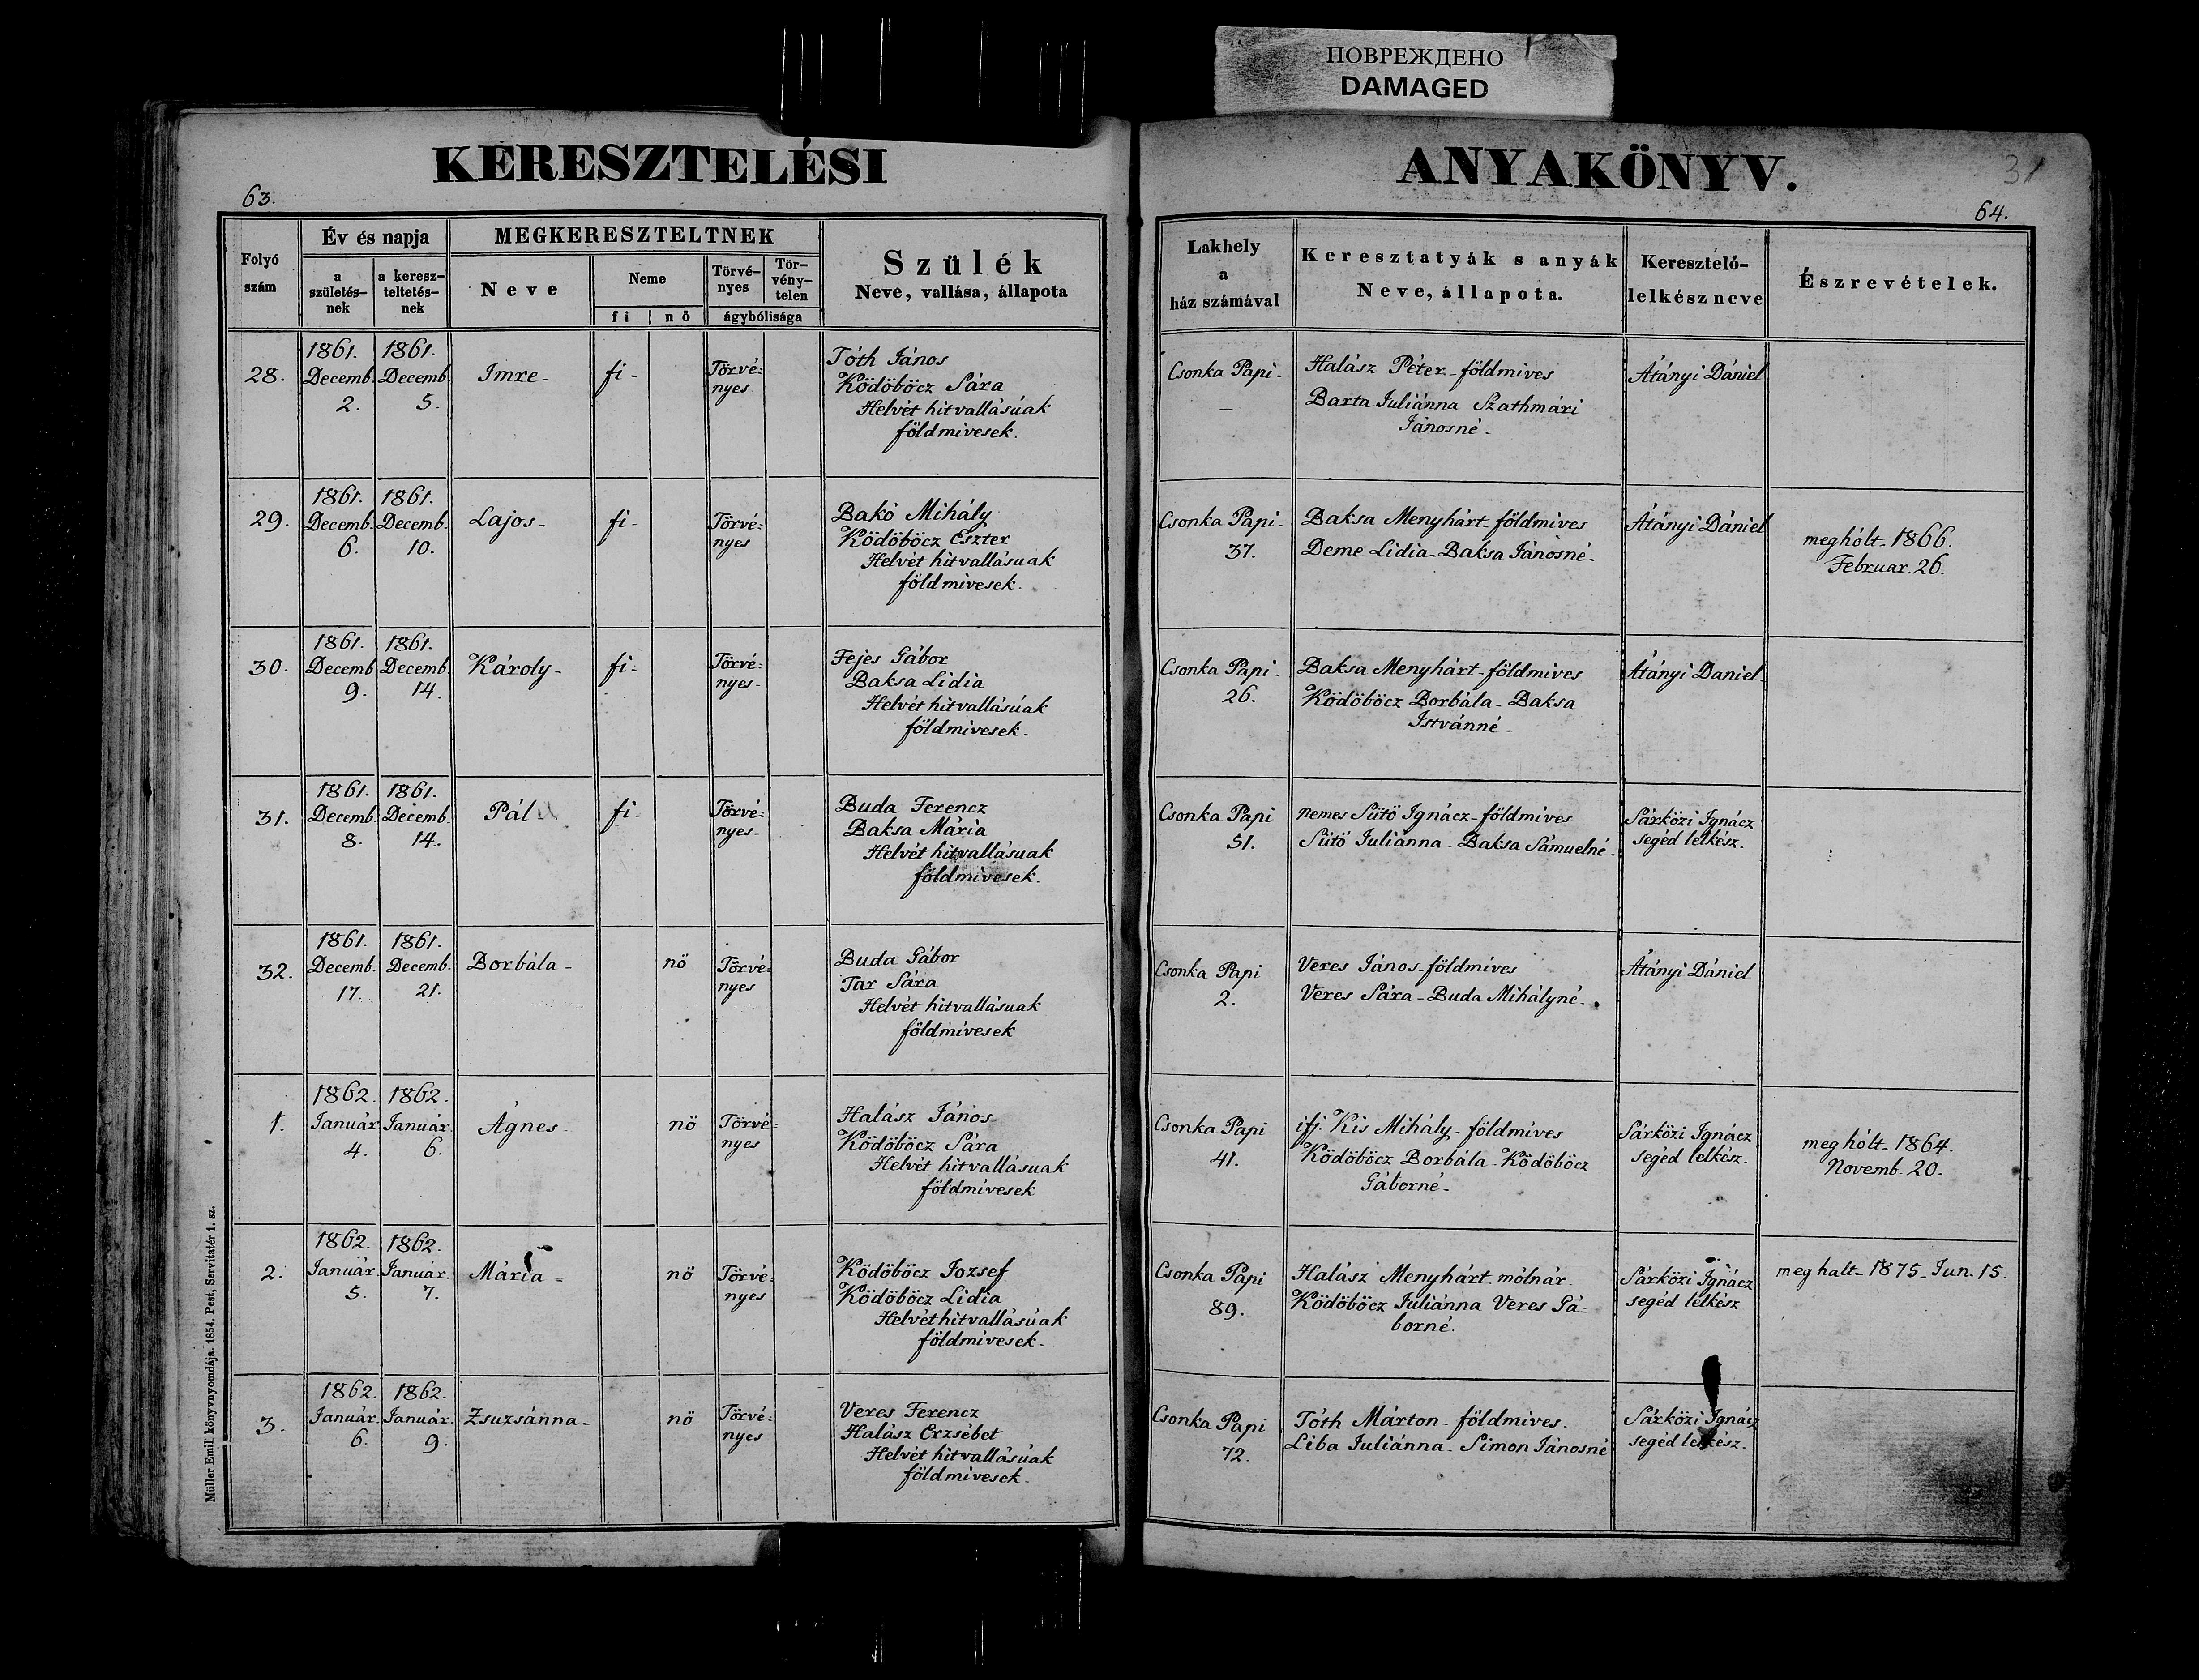 ПОВРЕЖДЕНО
DAMAGED
KERESZTELÉSI
63.
Folyó szám
Év és napja
a születés-nek
a keresz-teltetés-nek
MEGKERESZTELTNEK
Neve
Neme
fi
nö
Törvé-nyes
Tör-vény-telen
ágybólisága
Szülék
Neve, vallása, állapota
28.
1861. Decemb. 2.
1861. Decemb. 5.
Imre-
fi-
Törvé=
nyes
Tóth János
Ködöböcz Sára
Helvét hitvallásúak
földmivesek.
29.
1861. Decemb. 6.
1861. Decemb. 10.
Lajos-
fi-
Törvé=
nyes
Bakó Mihály
Ködöböcz Eszter
Helvét hitvallásuak
földmivesek.
30.
1861. Decemb 9.
1861. Decemb. 14.
Károly-
fi-
Törvé=
nyes-
Fejes Gábor
Baksa Lidia
Helvét hitvallásúak
földmivesek-
31.
1861. Decemb. 8.
1861. Decemb. 14.
Pál
fi-
Törvé=
nyes-
Buda Ferencz
Baksa Mária
Helvét hitvallásuak
földmivesek.
32.
1861. Decemb. 17.
1861. Decemb. 21.
Borbála-
nö
Törvé=
nyes
Buda Gábor
Tar Sára
Helvét hitvallásuak
földmívesek
1.
1862. Január 4.
1862. Január. 6.
Ágnes-
nö
Törvé=
nyes
Halász János
Ködöböcz Sára
Helvét hitvallásuak
földmívesek
2.
1862. Január. 5.
1862. Január. 7.
Mária-
nö
Törvé=
nyes
Ködöböcz Jozsef
Ködöböcz Lidia
Helvét hitvallásúak
földmívesek-
3.
1862. Január. 6.
1862. Január. 9.
Zsuzsánna-
nö
Törvé=
nyes
Veres Ferencz
Halász Erzsébet
Helvét hitvallásúak
földmivesek-
Müller Emil könyvnyomdája. 1854. Pest, Servitatér 1. sz.
ANYAKÖNYV.
31
64.
Lakhely
a
ház számával
Keresztatyák s anyák
Neve, állapota.
Keresztelő-
lelkész neve
Észrevételek.
Csonka Papi-
–
Halász Péter-földmives
Barta Juliánna Szathmári
Jánosné-
Átányi Dániel
Csonka Papi-
37.
Baksa Menyhárt-földmives
Deme Lidia-Baksa Jánosné-
Átányi Dániel
meghólt-1866.
Februar. 26.
Csonka Papi-
26.
Baksa Menyhárt-földmives
Ködöböcz Borbála-Baksa
Istvánné-
Átányi Daniel-
Csonka Papi
51.
nemes Sütö Ignácz-földmives
Sütö Juliánna-Baksa Sámuelné-
Sárközi Ignácz
segéd lelkész.
Csonka Papi
2.
Veres János-földmíves
Veres Sára-Buda Mihályné-
Átányi Dániel
Csonka Papi
41.
ifj. Kis Mihály-földmíves
Ködöböcz Borbála-Ködöböcz
Gáborné-
Sárközi Ignácz
segéd lelkész.
meghólt-1864.
Novemb. 20-
Csonka Papi
89.
Halász Menyhárt molnár.
Ködöböcz Juliánna Veres Gá=
borné.
Sárközi Ignácz
segéd lelkész
meghalt-1875-Jun. 15.
Csonka Papi
72.
Tóth Márton-földmives.
Liba Juliánna-Simon Jánosné
Sárközi Ignácz
segéd lelkész.